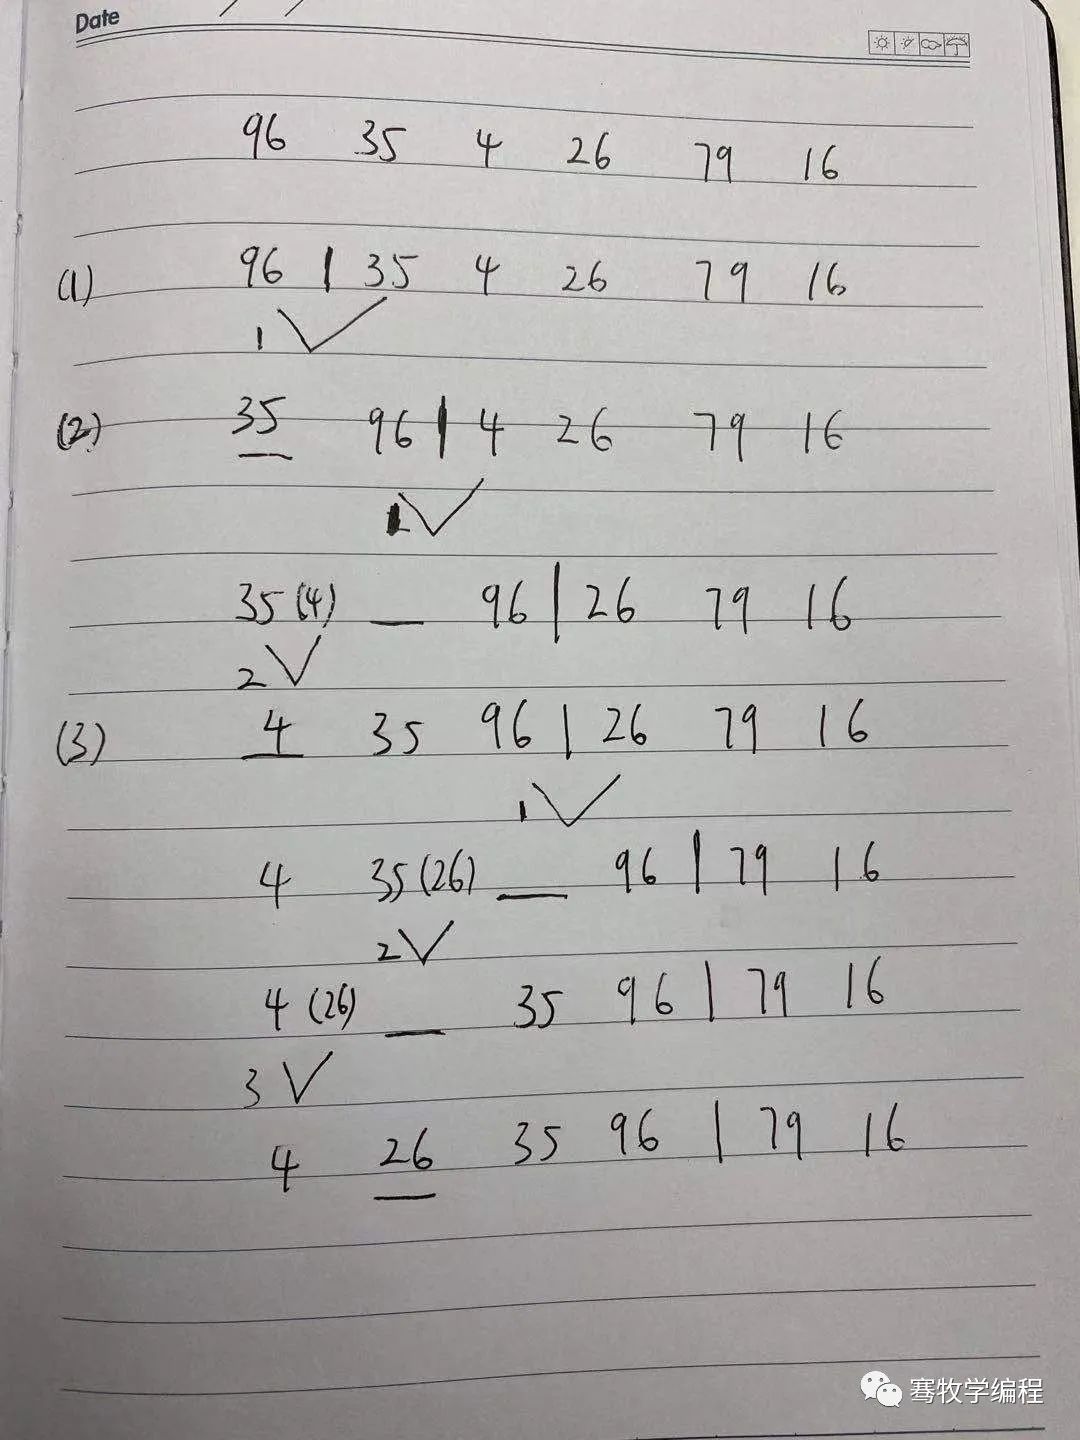 Date
96 35 4 26 79 16
(1) 96 | 35 4 26 79 16
1
(2) 35 96 | 4 26 79 16
1
35 (4) __ 96 | 26 79 16
2
(3) 4 35 96 | 26 79 16
1
4 35 (26) __ 96 | 79 16
2
4 (26) __ 35 96 | 79 16
3
4 26 35 96 | 79 16
骞牧学编程